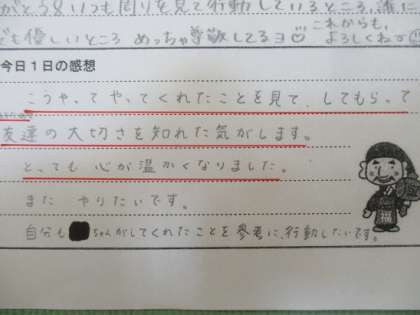 がとう8 いつも周りを見て行動しているところ、誰に
でも優しいところ めっちゃ尊敬してるヨ
これからも、
よろしくね
今日1日の感想
こうやってやってくれたことを見て、してもらって
友達の大切さを知れた気がします。
とっても心が温かくなりました。
また やりたいです。
自分も ちゃんがしてくれたことを参考に、行動したいです。
福